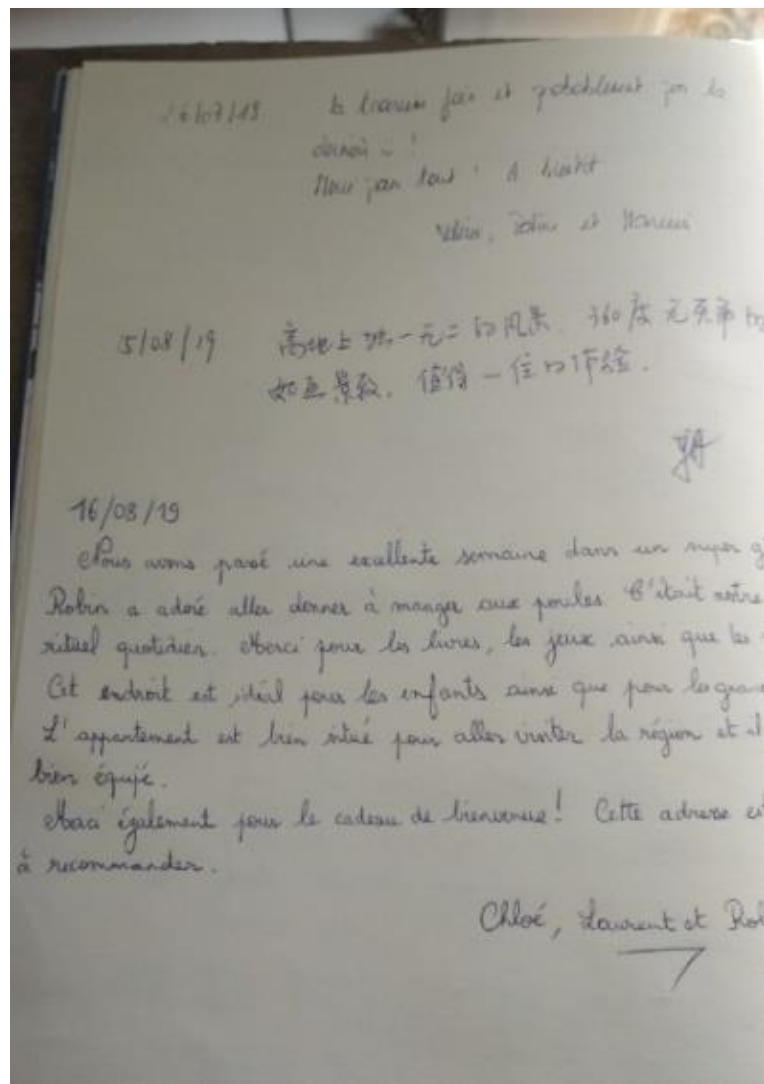 26/07/19 la troisième fois et probablement pas la
dernière !
Merci pour tout ! A bientôt
et
15/08/19 高地上独一无二的风景. 360度无死角的
如画景致. 值得一住的体验.
16/08/19
Nous avons passé une excellente semaine dans un super g
Robin a adoré aller donner à manger aux poules. C'était notre
rituel quotidien. Merci pour les livres, les jeux ainsi que les
Cet endroit est idéal pour les enfants ainsi que pour les gran
L'appartement est bien situé pour aller visiter la région et il
bien équipé.
Merci également pour le cadeau de bienvenue! Cette adresse es
à recommander.
Chloé, Laurent et Rob